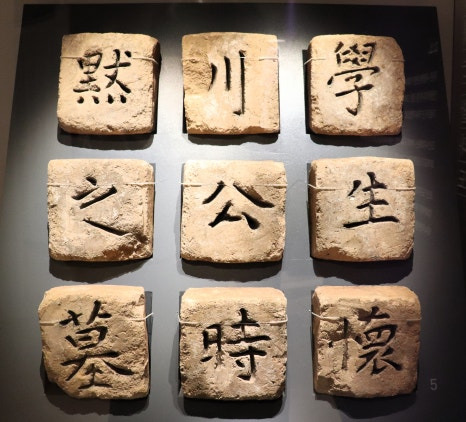 學生懷
川公時
默之墓
5